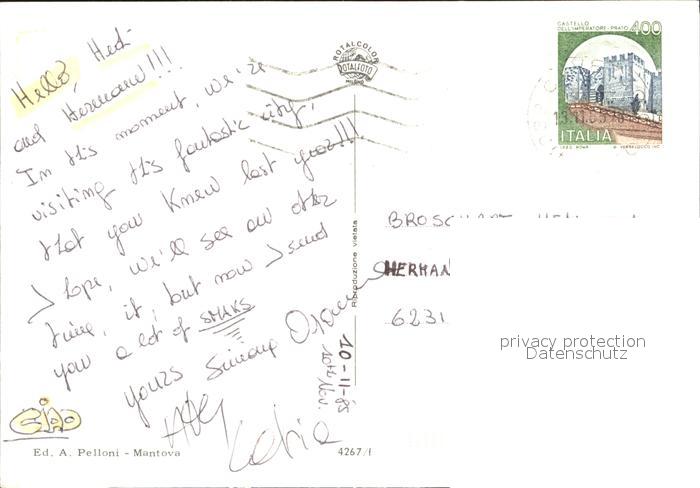 Hello, Hed-
and Hermann!!!
In this moment, we're
visiting this fantastic city,
that you knew last year!!!
I hope, we'll see an other
time, it, but now I send
you a lot of SMAKS
yours Simone
10-11-85
10th Nov.
CIAO
Ed. A. Pelloni - Mantova
4267/f
Riproduzione vietata
ROTALCOLOR
ROTALFOTO
MILANO
CASTELLO
DELL'IMPERATORE - PRATO 400
ITALIA
HERMAN
6231
privacy protection
Datenschutz